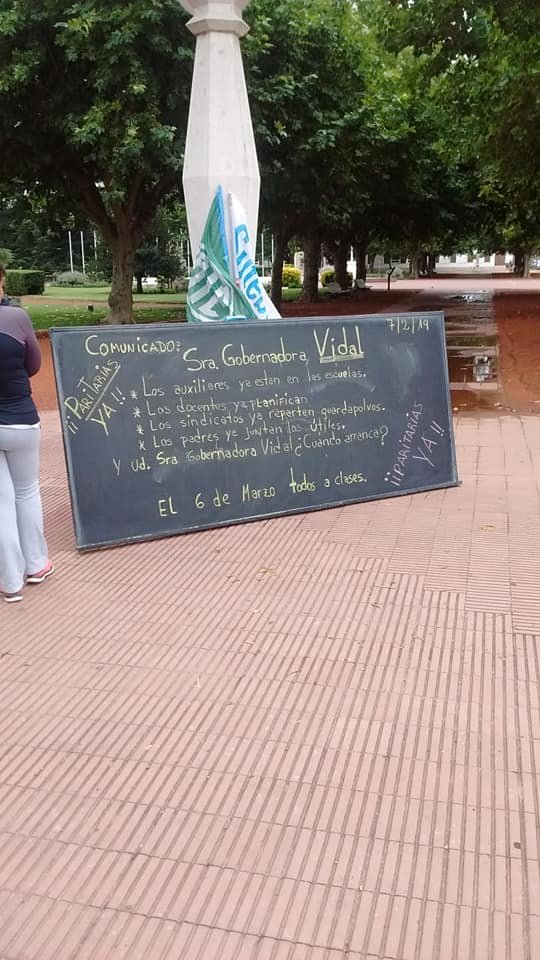 7/2/19
COMUNICADO:
Sra. Gobernadora, Vidal
¡¡PARITARIAS YA!!
* Los auxiliares ya estan en las escuelas.
* Los docentes ya planifican
* Los sindicatos ya reparten guardapolvos.
* Los padres ya juntan los útiles.
Y ud. Sra Gobernadora Vidal ¿Cuándo arranca?
EL 6 de Marzo todos a clases.
¡¡PARITARIAS YA!!